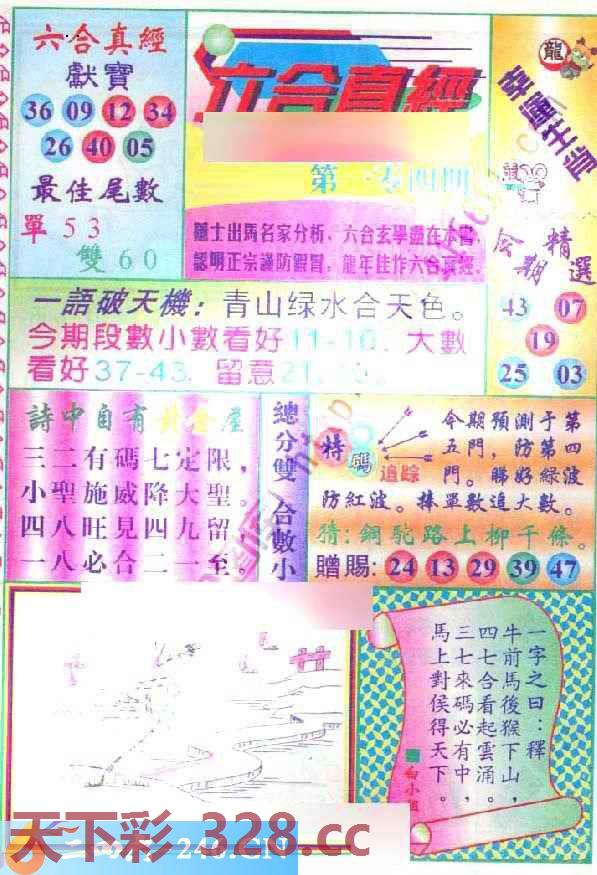 六合真經
獻寶
36 09 12 34
26 40 05
最佳尾數
單 5 3
雙 6 0
六合真經
第一零四期
龍
幸運生肖
鼠
道士出馬名家分析，六合玄學盡在本書，
認明正宗謹防假冒，龍年佳作六合真經。
今期精選
43 07
19
25 03
一語破天機：青山绿水合天色。
今期段數小數看好11-16、大數
看好37-43、留意
詩中自有黃金屋
三二有碼七定限，
小聖施威降大聖。
四八旺見四九留；
一八必合二一至。
總分雙 合數小
特碼追踪
今期預測于第
五門，防第四
門。睇好綠波
防紅波。捧單數追大數。
猜：銅駝路上柳千條。
贈賜：24 13 29 39 47
一字之曰：釋
牛前馬後猴下山，
四七合看起雲涌。
三七來碼必有中，
馬上對侯得天下。
白小姐
天下彩 328.cc
246.CN